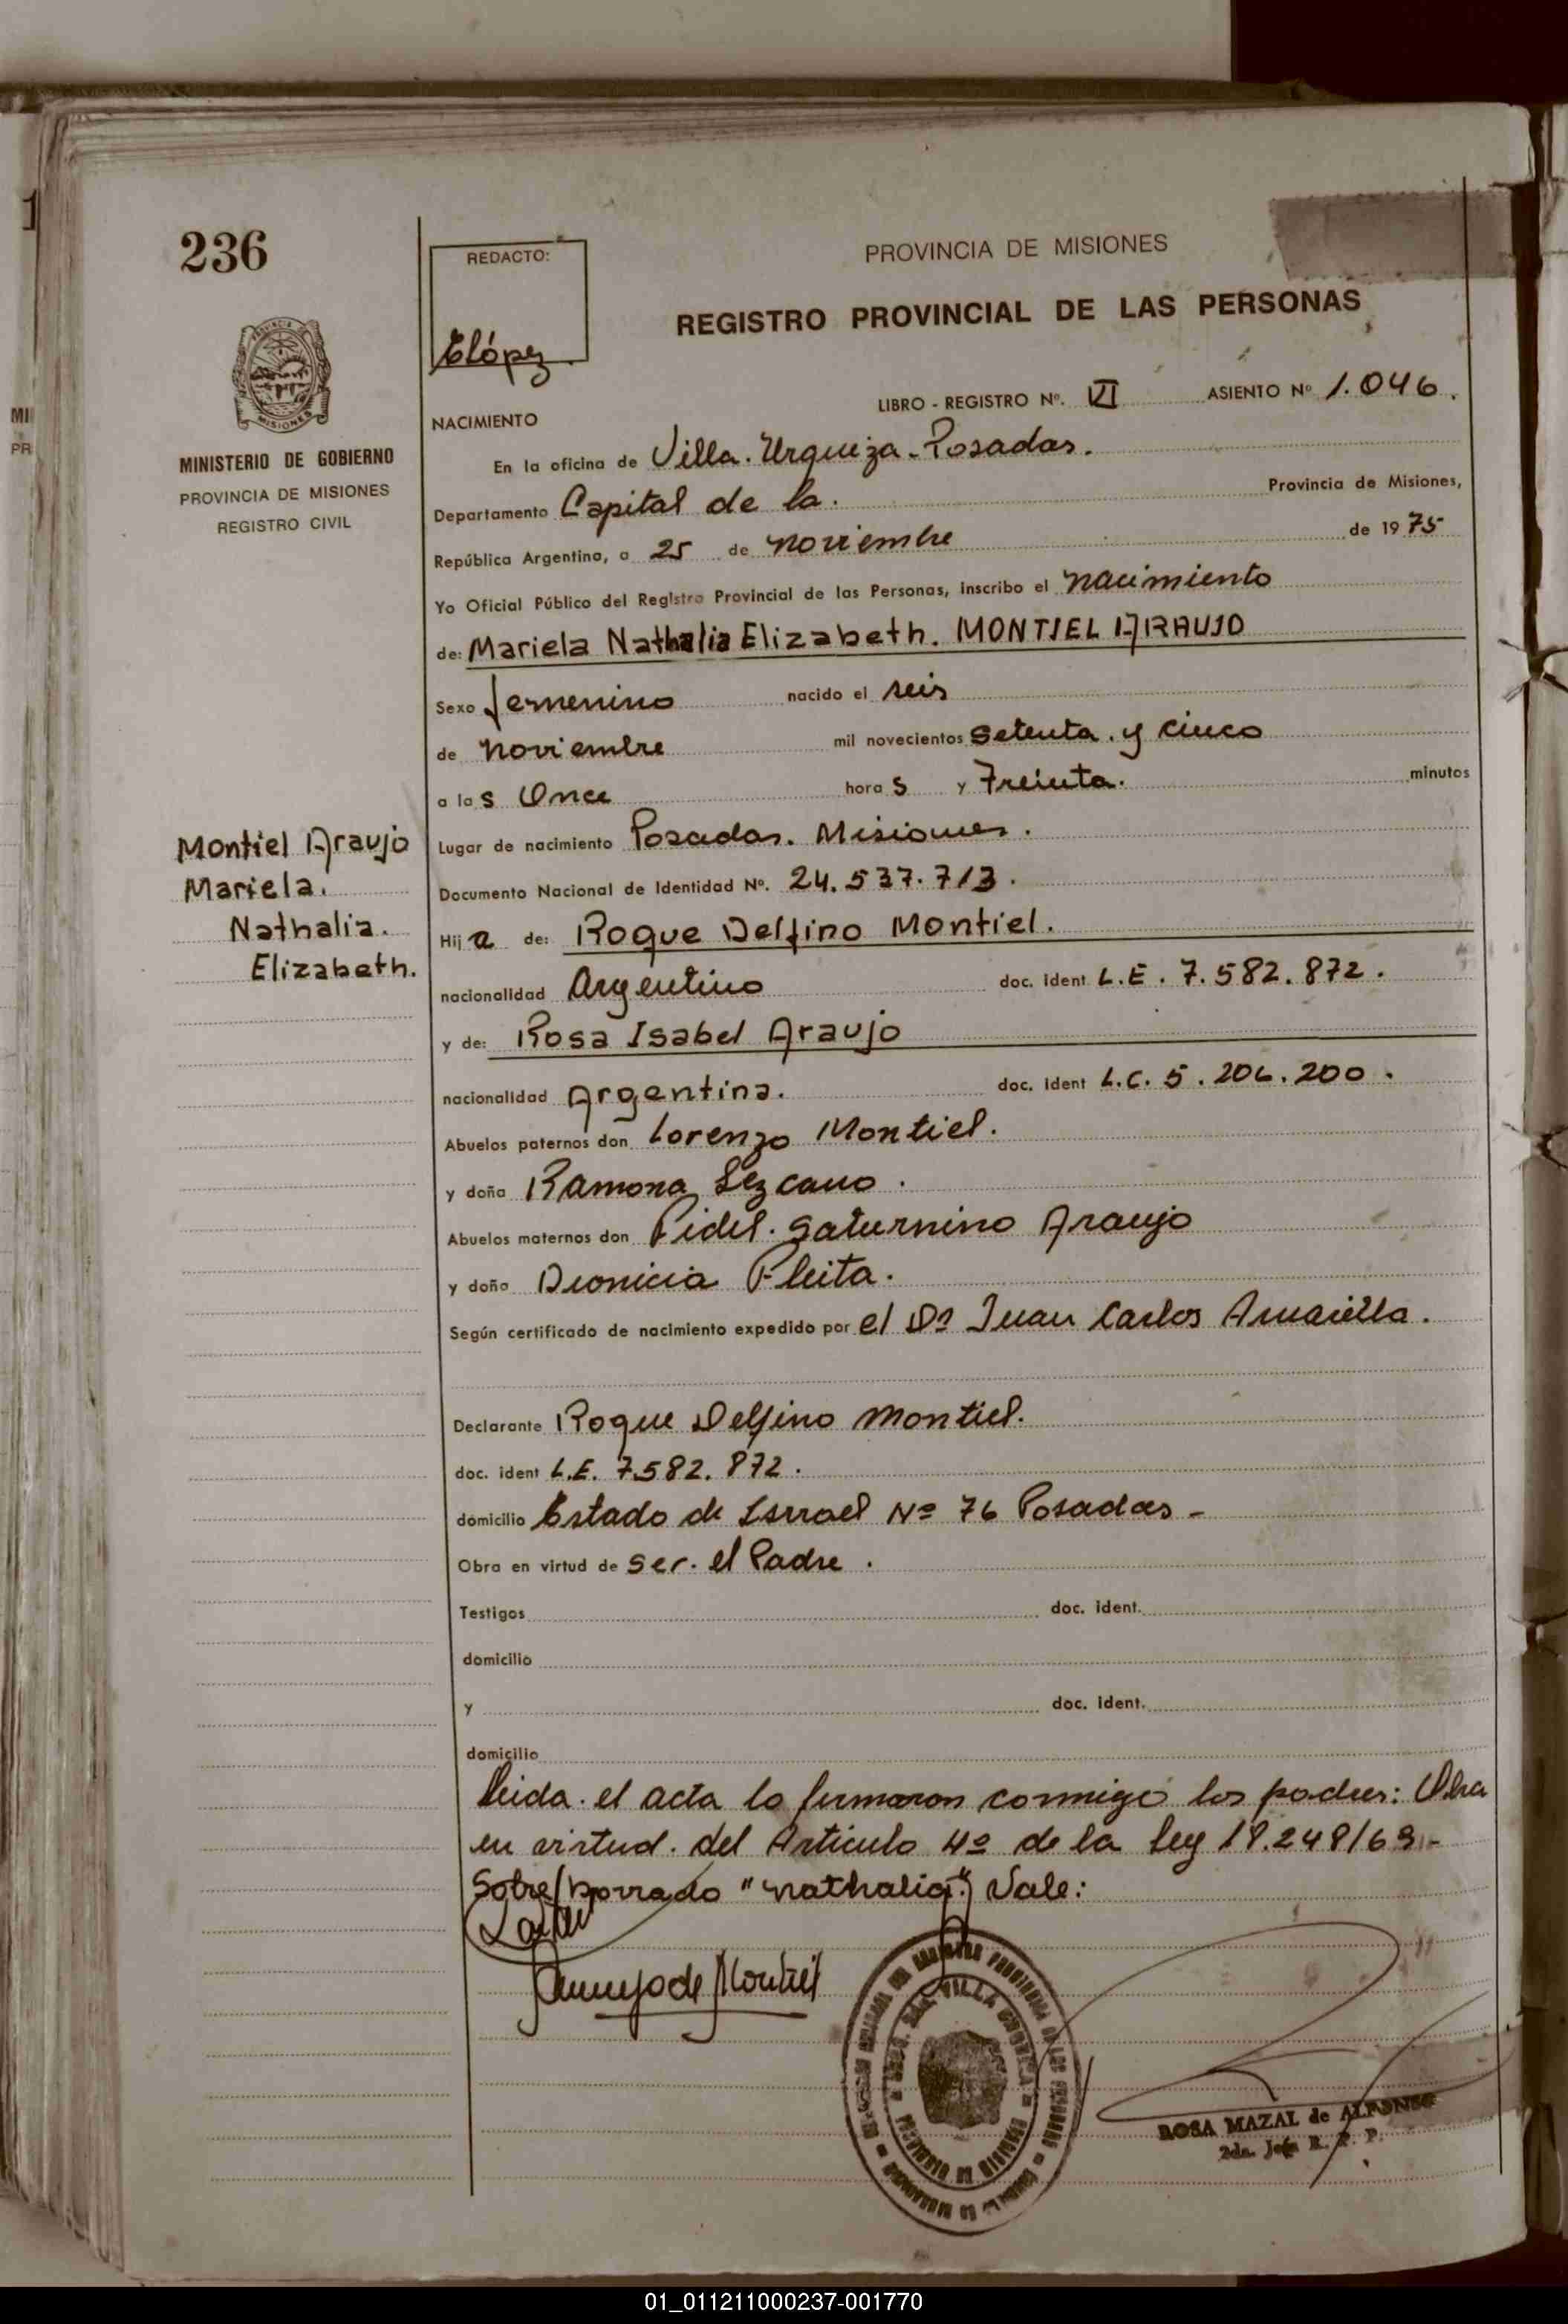 236
REDACTO:
ELópez
PROVINCIA DE MISIONES
REGISTRO PROVINCIAL DE LAS PERSONAS
MINISTERIO DE GOBIERNO
PROVINCIA DE MISIONES
REGISTRO CIVIL
LIBRO - REGISTRO Nº. VI ASIENTO Nº 1.046.
NACIMIENTO
En la oficina de Villa. Urquiza - Posadas.
Departamento Capital de la. Provincia de Misiones,
República Argentina, a 25 de noviembre de 1975
Yo Oficial Público del Registro Provincial de las Personas, inscribo el nacimiento
de: Mariela Nathalia Elizabeth. MONTIEL ARAUJO
Sexo femenino nacido el seis
de noviembre mil novecientos setenta y cinco
a las Once horas y Treinta. minutos
Montiel Araujo
Mariela.
Nathalia.
Elizabeth.
Lugar de nacimiento Posadas. Misiones.
Documento Nacional de Identidad Nº. 24.537.713.
Hija de: Roque Delfino Montiel.
nacionalidad Argentino doc. ident L.E. 7.582.872.
y de: Rosa Isabel Araujo
nacionalidad Argentina. doc. ident L.C. 5.206.200.
Abuelos paternos don Lorenzo Montiel.
y doña Ramona Lezcano.
Abuelos maternos don Fidel. Saturnino Araujo
y doña Dionicia Fleita.
Según certificado de nacimiento expedido por el Dr Juan Carlos Amarilla.
Declarante Roque Delfino Montiel.
doc. ident L.E. 7.582.872.
domicilio Estado de Isrrael Nº 76 Posadas -
Obra en virtud de ser. el Padre.
Testigos doc. ident.
domicilio
y doc. ident.
domicilio
leida. el acta lo firmaron conmigo los padres: Obra
en virtud. del Articulo 4º de la ley 18.248/69.-
Sobre/borrado "nathalia". Vale:
Araujo de Montiel
ROSA MAZAL de ALFONSO
2da. Jefa R. P. P.
01_011211000237-001770